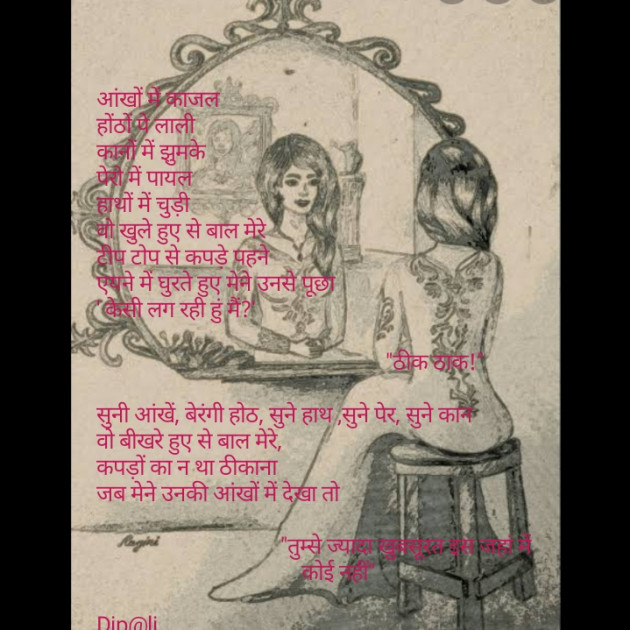 आंखों में काजल
होंठों पे लाली
कानों में झुमके
पेरो में पायल
हाथों में चुड़ी
वो खुले हुए से बाल मेरे
टीप टोप से कपड़े पहने
एयने में घुरते हुए मेने उनसे पूछा
"केसी लग रही हुं मैं?"
"ठीक ठाक!"
सुनी आंखें, बेरंगी होठ, सुने हाथ ,सुने पेर, सुने कान
वो बीखरे हुए से बाल मेरे,
कपड़ों का न था ठीकाना
जब मेने उनकी आंखों में देखा तो
Ragini
"तुम्से ज्यादा खुबसूरत इस जहां में
कोई नहीं"
Dip@li